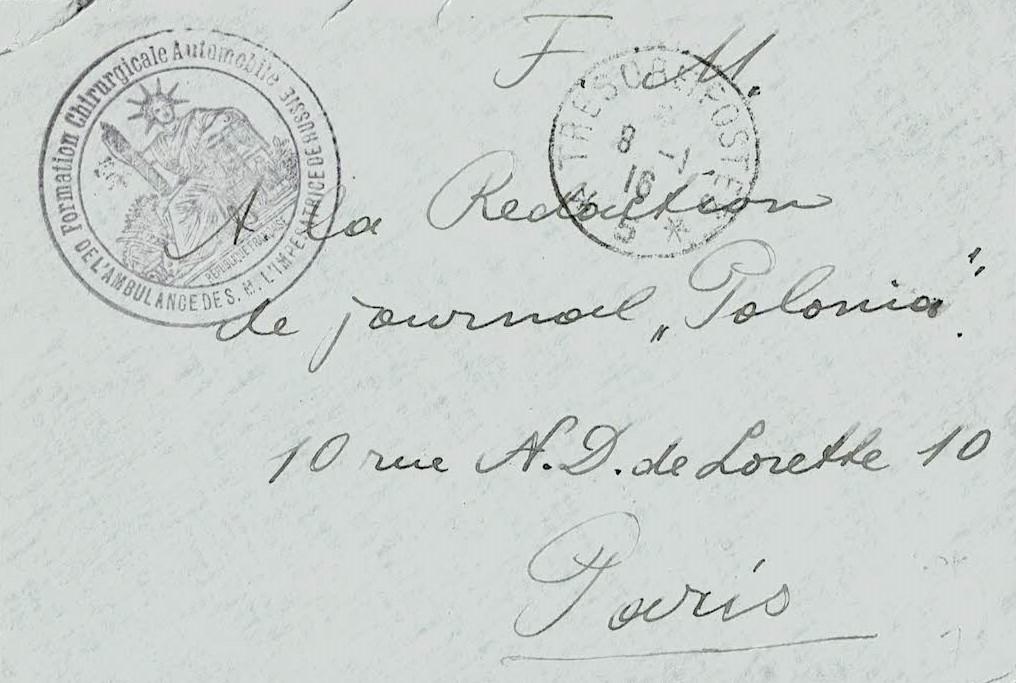 F. M.
Formation Chirurgicale Automobile
DE L'AMBULANCE DE S. M. L'IMPÉRATRICE DE RUSSIE
RÉPUBLIQUE FRANÇAISE
TRESOR ET POSTES
8 -1
16
* 5 *
A la Redaction
de journal „Polonia".
10 rue N. D. de Lorette 10
Paris